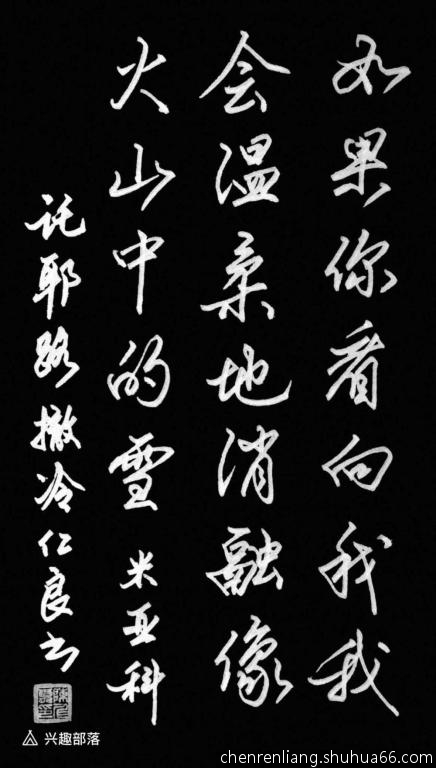 如果你看向我我
会温柔地消融像
火山中的雪 米亚科
託耶路撒冷仁良书
兴趣部落
chenrenliang.shuhua66.com